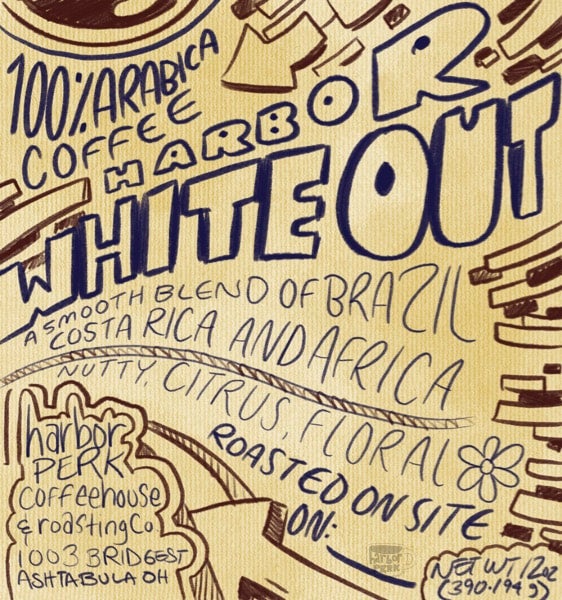 100% ARABICA
COFFEE
HARBOR
WHITE OUT
A SMOOTH BLEND OF BRAZIL
COSTA RICA AND AFRICA
NUTTY, CITRUS, FLORAL
ROASTED ON SITE
ON:
harbor
PERK
Coffeehouse
& roasting Co
1003 BRIDGE ST
ASHTABULA OH
harbor
PERK
NET WT. 12oz
(390.194g)